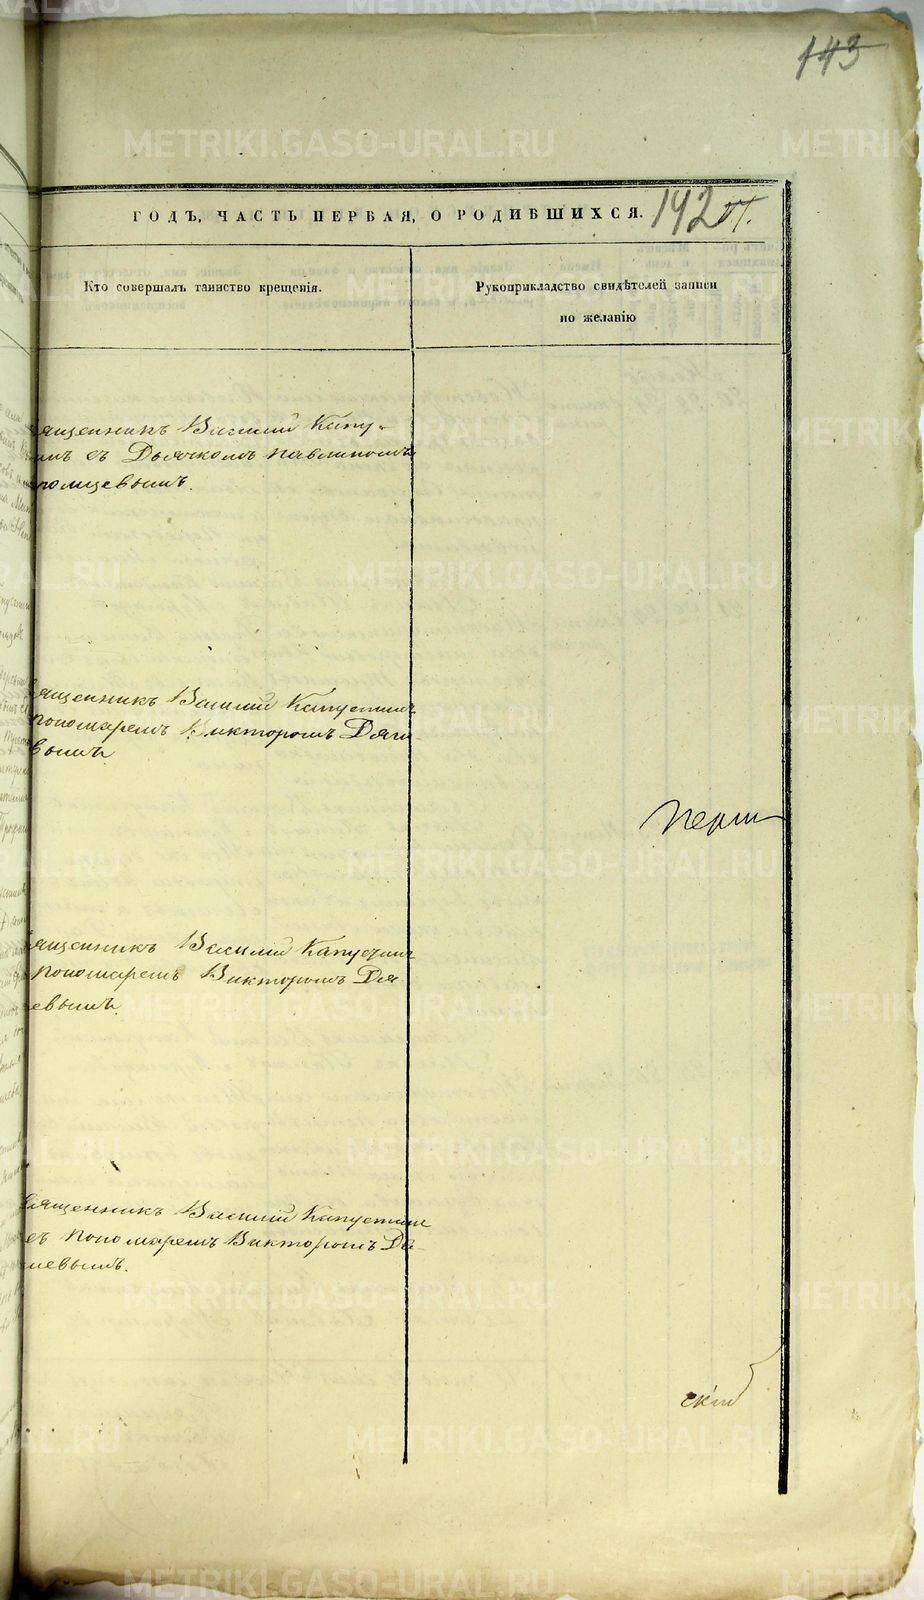 143
ГОДЪ, ЧАСТЬ ПЕРВАЯ, О РОДИВШИХСЯ. 142
Кто совершалъ таинство крещенія.
Рукоприкладство свидѣтелей записи
по желанію
ященникъ Василий Капу-
съ Дьячкомъ Павлиномъ
ященникъ Василий Капустинъ
пономаремъ Викторомъ Дяги
вымъ
Перм
ященникъ Василий Капустинъ
пономаремъ Викторомъ Дя
евымъ
священникъ Василий Капустинъ
съ пономаремъ Викторомъ Дя-
левымъ.
скій
METRIKI.GASO-URAL.RU